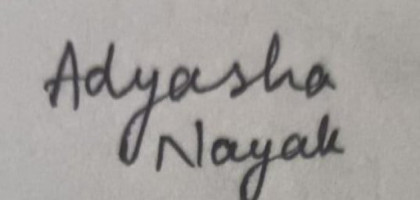 Adyasha
Nayak